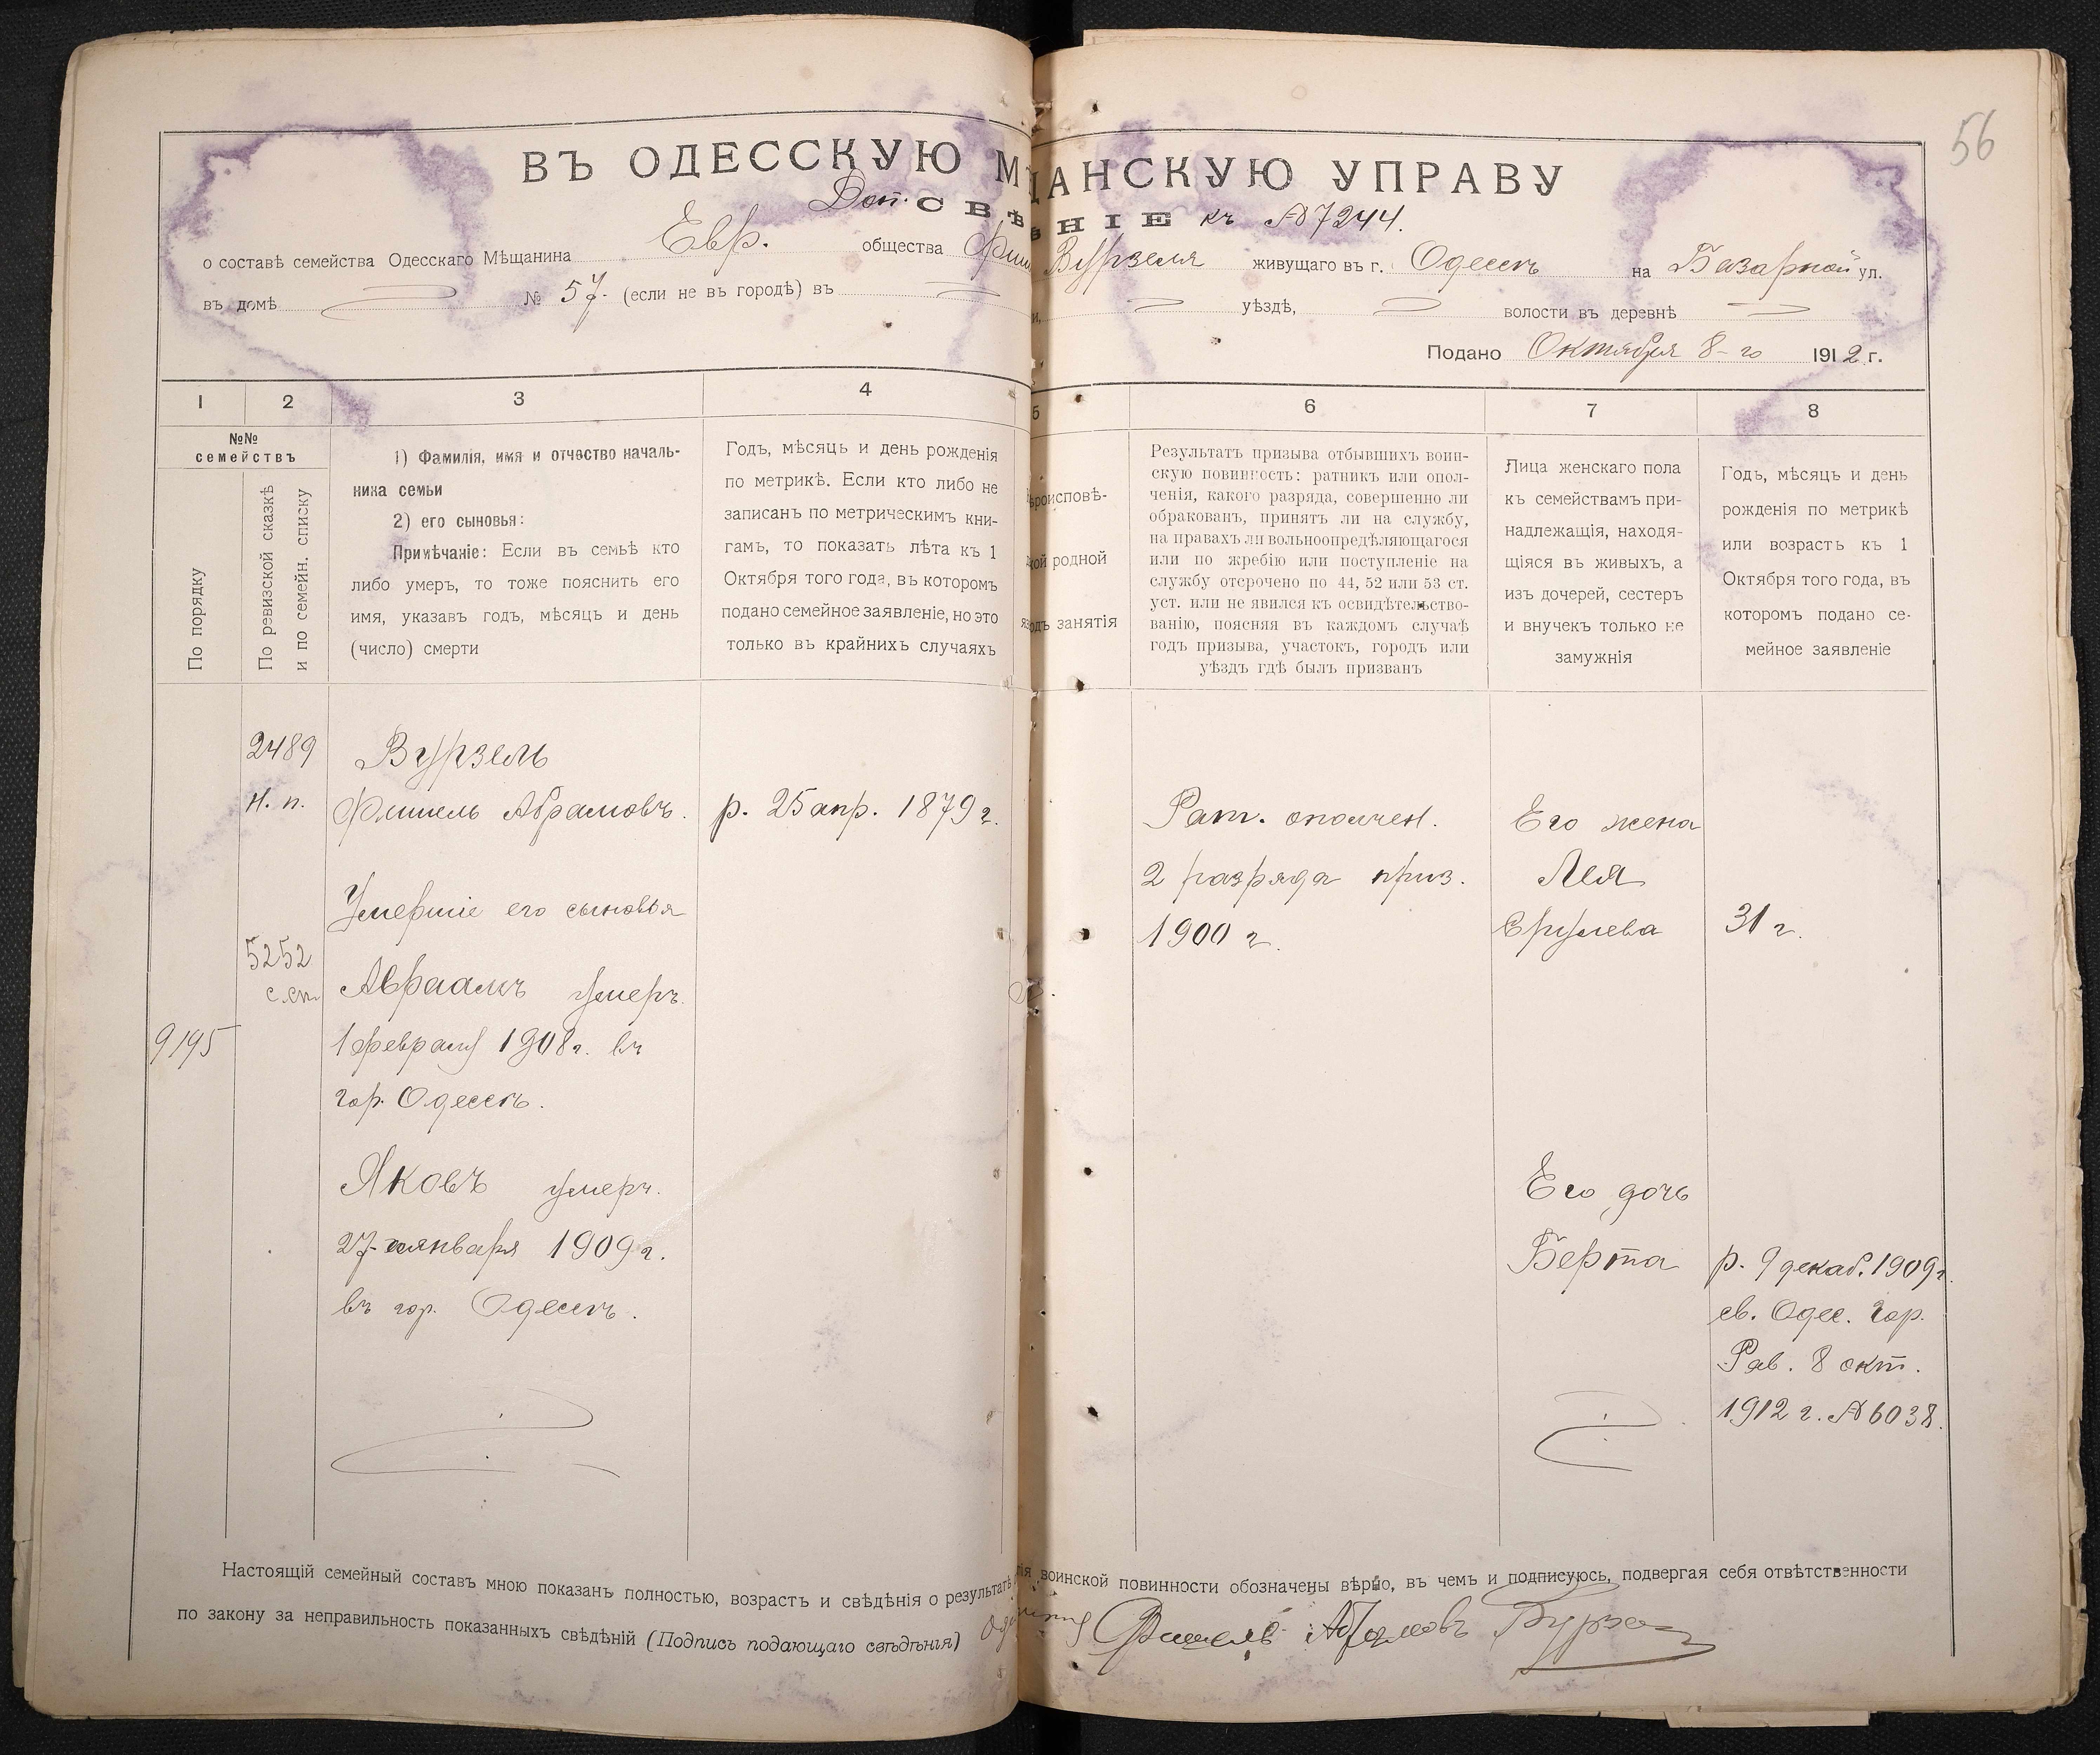 56
ВЪ ОДЕССКУЮ М ЩАНСКУЮ УПРАВУ
Доп. СВѢ НІЕ къ №7244.
о составѣ семейства Одесскаго Мѣщанина Евр. общества Фиш Вурзеля живущаго въ г. Одессѣ на Базарной ул.
въ домѣ № 57. (если не въ городѣ) въ уѣздѣ, волости въ деревнѣ
Подано Октября 8-го 1912 г.
1 2 3 4 5 6 7 8
№№
семействъ
По порядку
По ревизской сказкѣ
и по семейн. списку
1) Фамилія, имя и отчество началь-
ника семьи
2) его сыновья:
Примѣчаніе: Если въ семьѣ кто
либо умеръ, то тоже пояснить его
имя, указавъ годъ, мѣсяцъ и день
(число) смерти
Годъ, мѣсяцъ и день рожденія
по метрикѣ. Если кто либо не
записанъ по метрическимъ кни-
гамъ, то показать лѣта къ 1
Октября того года, въ которомъ
подано семейное заявленіе, но это
только въ крайнихъ случаяхъ
роисповѣ-
кой родной
одъ занятія
Результатъ призыва отбывшихъ воин-
скую повинность: ратникъ или опол-
ченія, какого разряда, совершенно ли
обракованъ, принятъ ли на службу,
на правахъ ли вольноопредѣляющагося
или по жребію или поступленіе на
службу отсрочено по 44, 52 или 53 ст.
уст. или не явился къ освидѣтельство-
ванію, поясняя въ каждомъ случаѣ
годъ призыва, участокъ, городъ или
уѣздъ гдѣ былъ призванъ
Лица женскаго пола
къ семействамъ при-
надлежащія, находя-
щіяся въ живыхъ, а
изъ дочерей, сестеръ
и внучекъ только не
замужнія
Годъ, мѣсяцъ и день
рожденія по метрикѣ
или возрастъ къ 1
Октября того года, въ
которомъ подано се-
мейное заявленіе
2489
н. п.
5252
с. сп.
9195
Вурзель
Фишель Абрамовъ.
Умершіе его сыновья
Авраамъ умеръ
1 февраля 1908 г. въ
гор. Одессѣ.
Яковъ умеръ.
27-января 1909 г.
въ гор. Одессѣ.
р. 25 апр. 1879 г.
Рат. ополчен.
2 разряда приз.
1900 г.
Его жена
Лея
Срулева 31 г.
Его дочь
Берта
р. 9 декаб. 1909 г.
св. Одес. Гор.
Рав. 8 окт.
1912 г. №6038.
Настоящій семейный составъ мною показанъ полностью, возрастъ и свѣдѣнія о результатѣ воинской повинности обозначены вѣрно, въ чемъ и подписуюсь, подвергая себя отвѣтственности
по закону за неправильность показанныхъ свѣдѣній (Подпись подающаго свѣдѣнія) Фишель Абрамовъ Вурзель